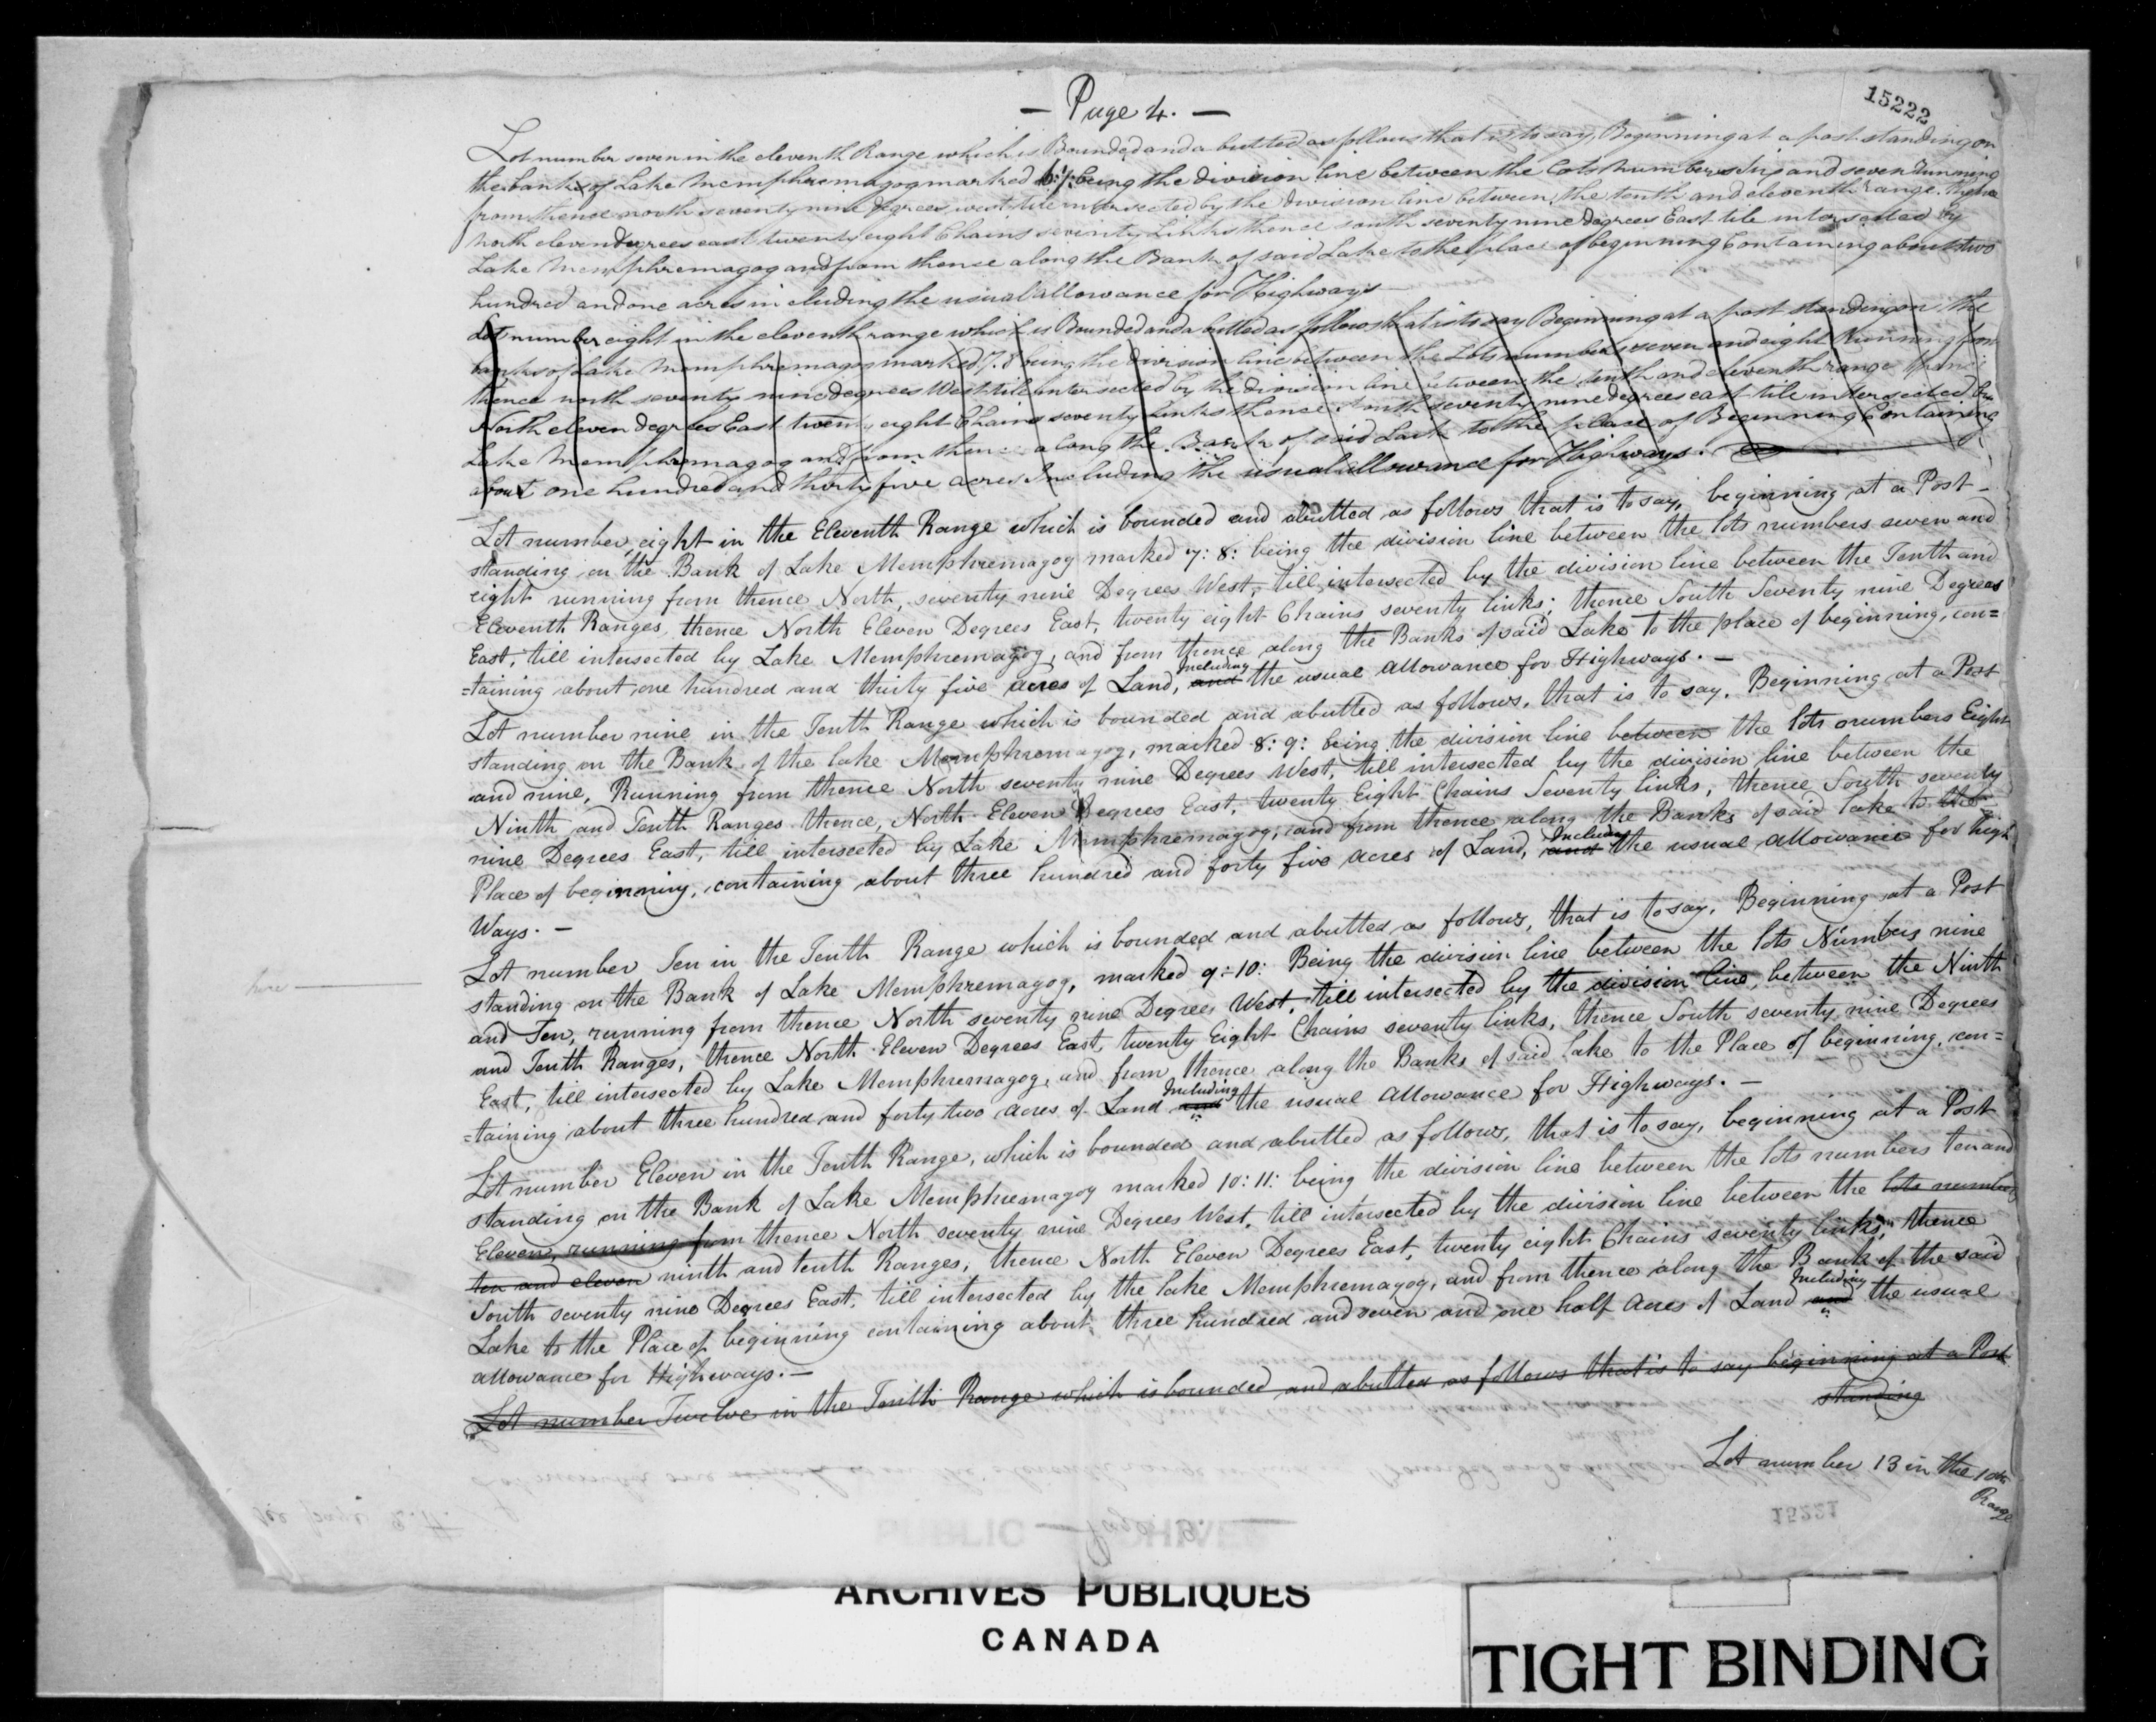 15222
— Page 4. —
Lot number seven in the eleventh Range which is Bounded and a butted as follows that is to say, Beginning at a post standing on
the banks of Lake Memphremagog marked 6:7: being the division line between the Lots numbers Six and seven running
from thence north seventy nine degrees west till intersected by the division line between the tenth and eleventh range, thence
North eleven degrees east twenty eight Chains seventy Links thence south seventy nine Degrees East till intersected by
Lake Memphremagog and from thence along the Bank of said Lake to the place of beginning Containing about two
hundred and one acres including the usual allowance for Highways
Lot number eight in the eleventh range which is Bounded and a butted as follows that is to say Beginning at a post standing on the
banks of Lake Memphremagog marked 7.8 being the division line between the Lots numbers seven and eight Running from
thence north seventy nine degrees West till intersected by the division line between the tenth and eleventh range thence
North eleven degrees East twenty eight Chains seventy Links thence South seventy nine degrees east till intersected by
Lake Memphremagog and from thence along the Bank of said Lake to the place of Beginning Containing
about one hundred and thirty five acres Including the usual allowance for Highways.
Lot number eight in the Eleventh Range which is bounded and abutted as follows that is to say, beginning at a Post
standing on the Bank of Lake Memphremagog marked 7: 8: being the division line between the lots numbers seven and
eight running from thence North, seventy nine Degrees West, till intersected by the division line between the Tenth and
Eleventh Ranges, thence North Eleven Degrees East, twenty eight Chains seventy links; thence South Seventy nine Degrees
East, till intersected by Lake Memphremagog, and from thence along the Banks of said Lake to the place of beginning, con=
=taining about one hundred and thirty five acres of Land, and Including the usual allowance for Highways. —
Lot number nine in the Tenth Range which is bounded and abutted as follows, that is to say. Beginning at a Post
standing on the Bank of the lake Memphremagog, marked 8: 9: being the division line between the lots numbers Eight
and nine, Running from thence North seventy nine Degrees West, till intersected by the division line between the
Ninth and Tenth Ranges thence, North Eleven Degrees East, twenty Eight Chains Seventy links, thence South seventy
nine Degrees East, till intersected by Lake Memphremagog, and from thence along the Banks of said lake to the
Place of beginning, containing about three hundred and forty five acres of Land, and Including the usual allowance for high
Ways. —
Lot number Ten in the Tenth Range which is bounded and abutted as follows, that is to say, Beginning at a Post
standing on the Bank of Lake Memphremagog, marked 9: 10: Being the division line between the lots Numbers nine
here
and Ten, running from thence North seventy nine Degrees West, till intersected by the division line between the Ninth
and Tenth Ranges, thence North Eleven Degrees East, twenty Eight Chains seventy links, thence South seventy nine Degrees
East, till intersected by Lake Memphremagog, and from thence along the Banks of said lake to the Place of beginning, con=
=taining about three hundred and forty two acres of Land and Including the usual allowance for Highways. —
Lot number Eleven in the Tenth Range, which is bounded and abutted as follows, that is to say, beginning at a Post
standing on the Bank of Lake Memphremagog marked 10: 11: being the division line between the lots numbers ten and
Eleven, running from thence North seventy nine Degrees West, till intersected by the division line between the lots numbers
ten and eleven ninth and tenth Ranges, thence North Eleven Degrees East, twenty eight Chains seventy links; thence
South seventy nine Degrees East, till intersected by the lake Memphremagog, and from thence along the Bank of the said
Lake to the Place of beginning containing about three hundred and seven and one half Acres of Land and Including the usual
allowance for Highways. —
Lot number Twelve in the Tenth Range which is bounded and abutted as follows that is to say beginning at a Post
standing
Lot number 13 in the 10th
Range
15221
ARCHIVES PUBLIQUES
CANADA
TIGHT BINDING